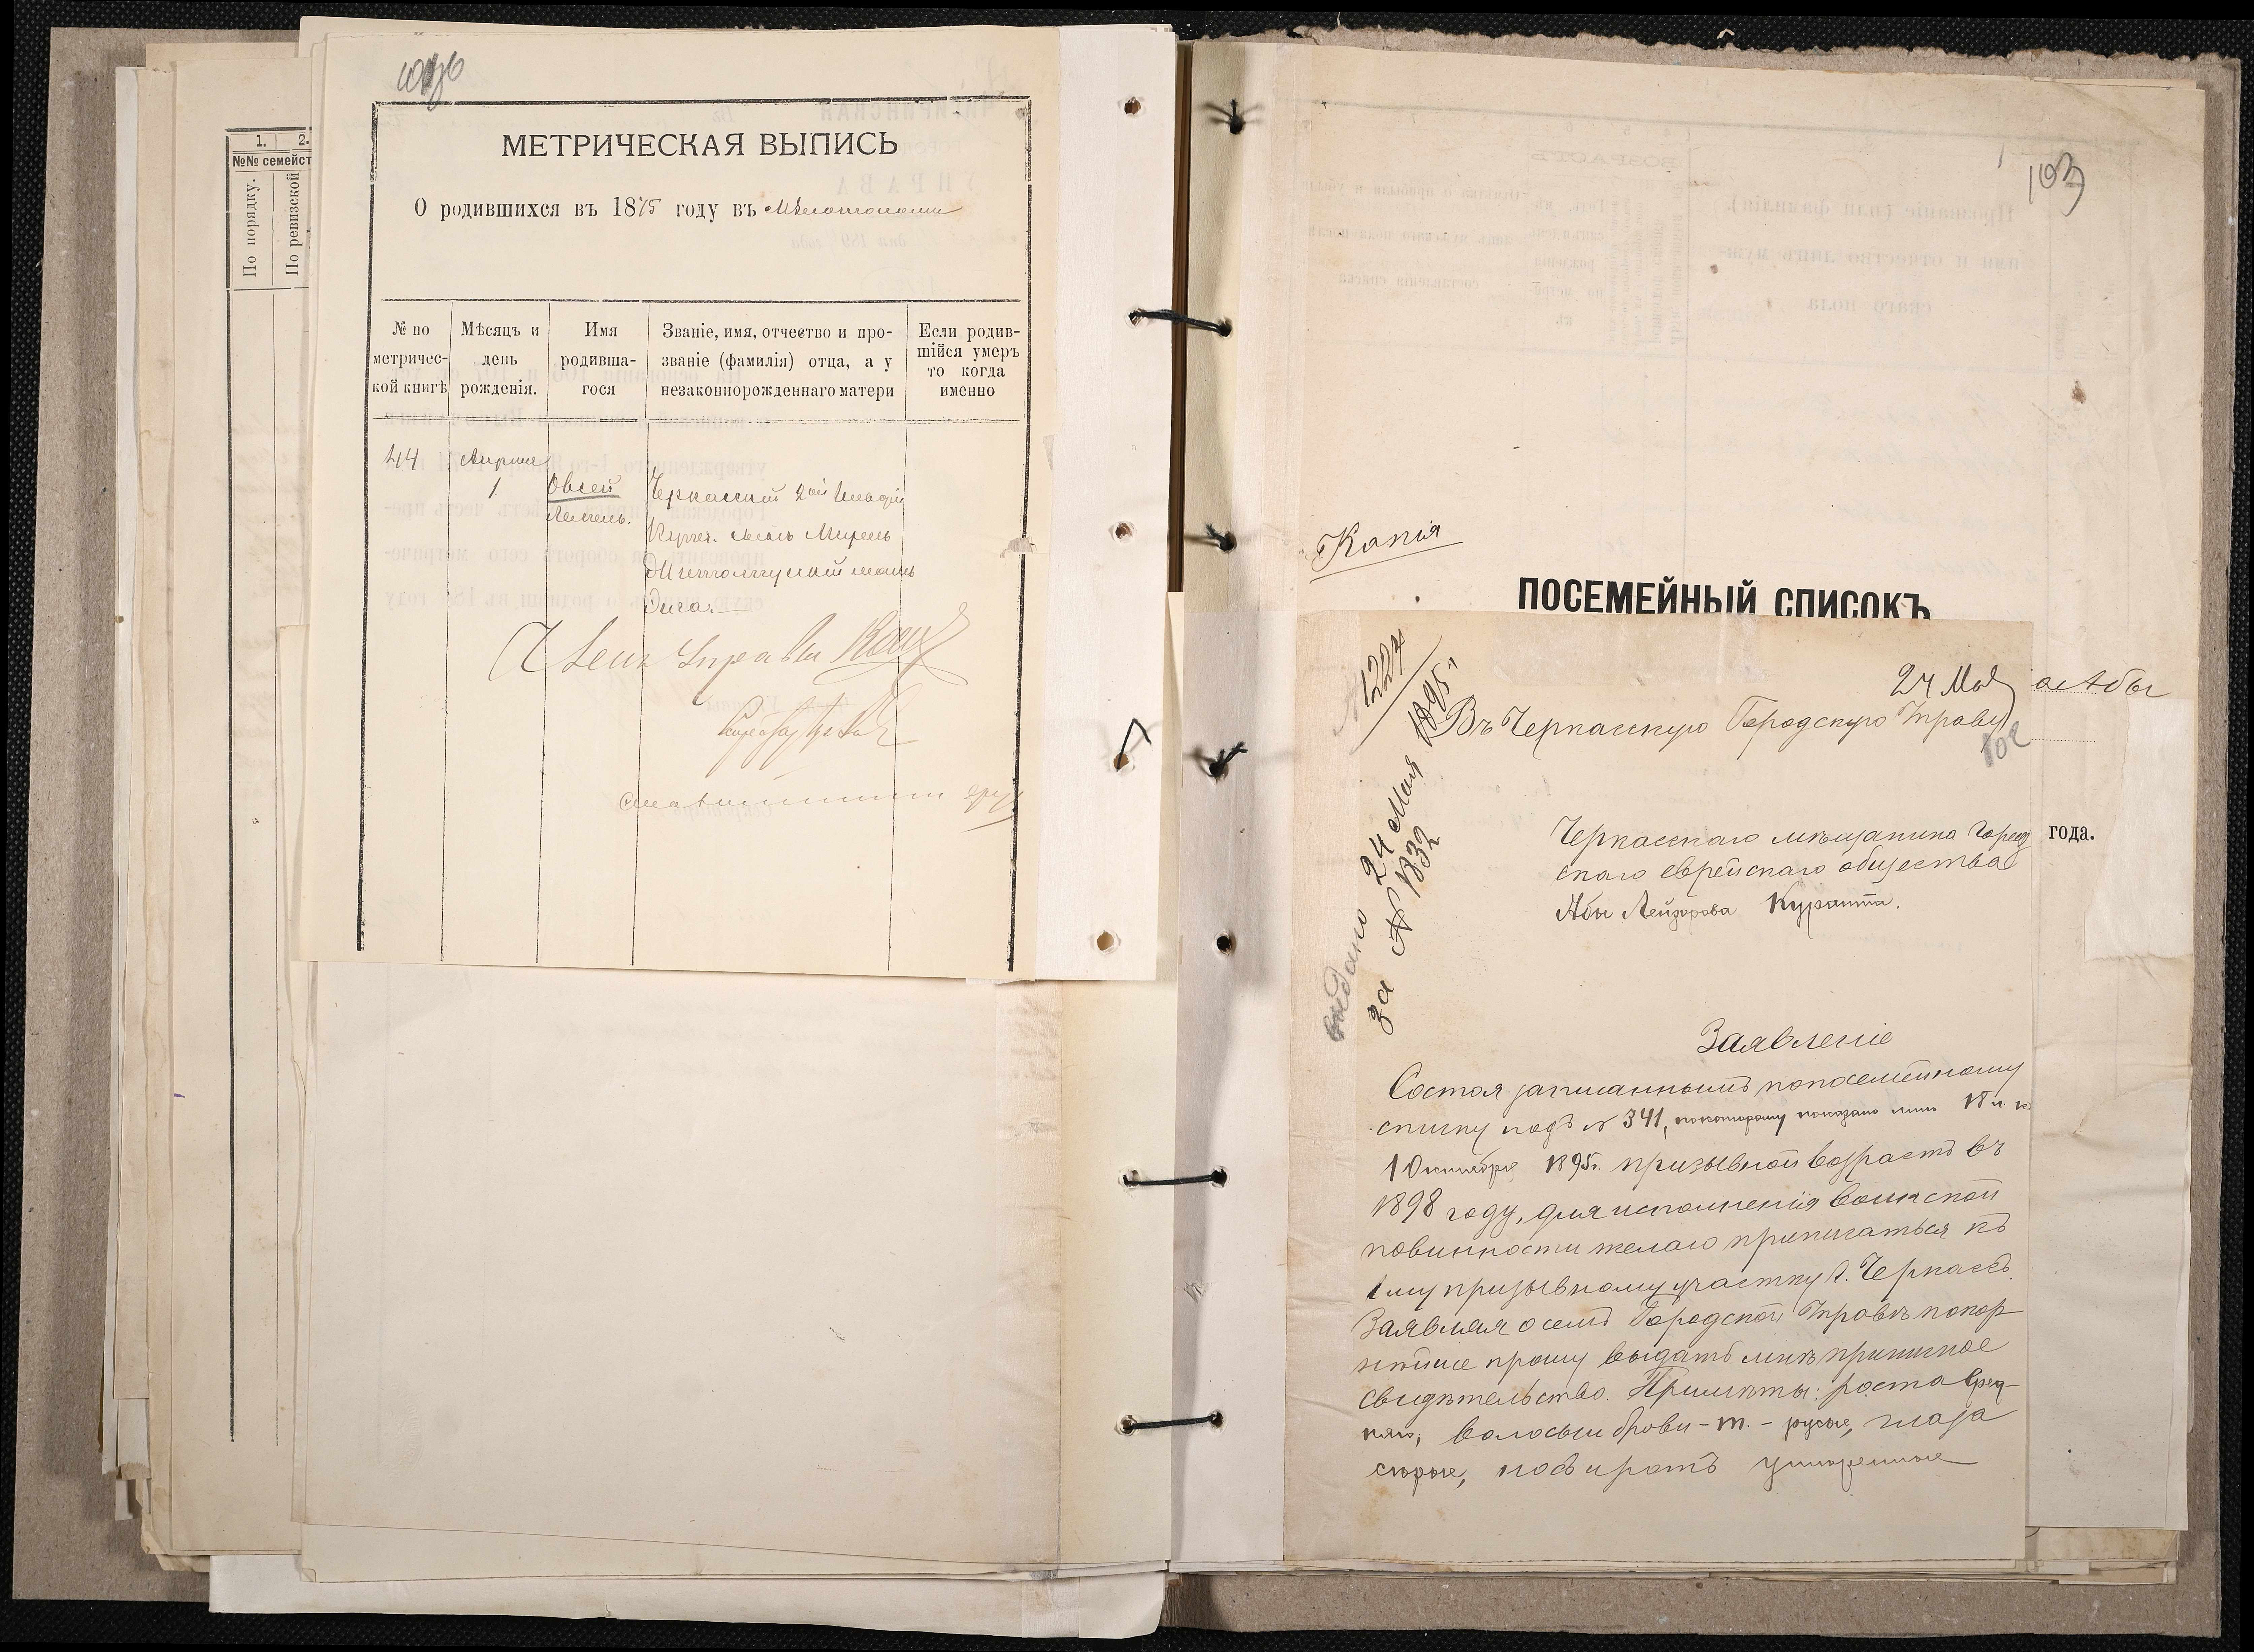 1. 2.
№№ семейст
По порядку.
По ревизской
МЕТРИЧЕСКАЯ ВЫПИСЬ
О родившихся въ 1875 году въ
№ по метричес-кой книгѣ
Мѣсяцъ и день рожденія.
Имя родивша-гося
Званіе, имя, отчество и про-званіе (фамилія) отца, а у незаконнорожденнаго матери
Если родив-шійся умеръ то когда именно
44
Апрѣля
1
Овсей
Черкасскій 2ой
Членъ Управы
103
Копія
ПОСЕМЕЙНЫЙ СПИСОКЪ
Абы
года.
1224
1895
24 Мая
Въ Черкасскую Городскую Управу
102
выдано 24 Мая
за № 1832
Черкасскаго мѣщанина Город
скаго еврейскаго общества
Абы Лейзорова Куранта.
Заявленіе
Состоя записаннымъ по посемейному
списку подъ № 341, по которому показано мнѣ 18 л. к
1 Октября 1895г. призывной возрастъ въ
1898 году, для исполненія воинской
повинности желаю приписаться къ
1му призывному участку г. Черкассъ.
Заявляя о семъ Городской Управѣ покор
нѣйше прошу выдать мнѣ приписное
свидѣтельство. Примѣты: роста сред-
няго, волосы и брови - т. - русые, глаза
сѣрые, носъ и ротъ умѣренные